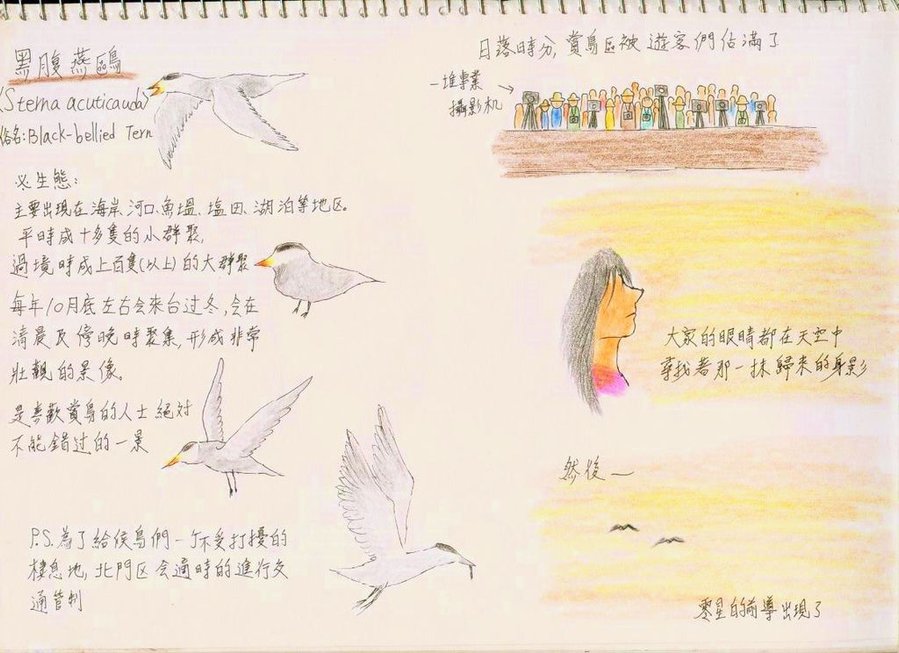 黑腹燕鷗
(Sterna acuticauda)
俗名:Black-bellied Tern
生態:
主要出現在海岸、河口、魚塭、塩田、湖泊等地区。
平時成十多隻的小群聚,
過境時成上百隻(以上)的大群聚
每年10月底左右会來台过冬,会在
清晨及傍晚時聚集,形成非常
壯觀的景像。
是喜歡賞鳥的人士絕对
不能錯过的一景
P.S.為了給候鳥們一个不受打擾的
棲息地,北門区会適時的進行交
通管制
日落時分,賞鳥區被遊客們佔滿了
一堆專業
攝影机
大家的眼睛都在天空中
尋找着那一抹歸來的身影
然後~
零星的前導出現了